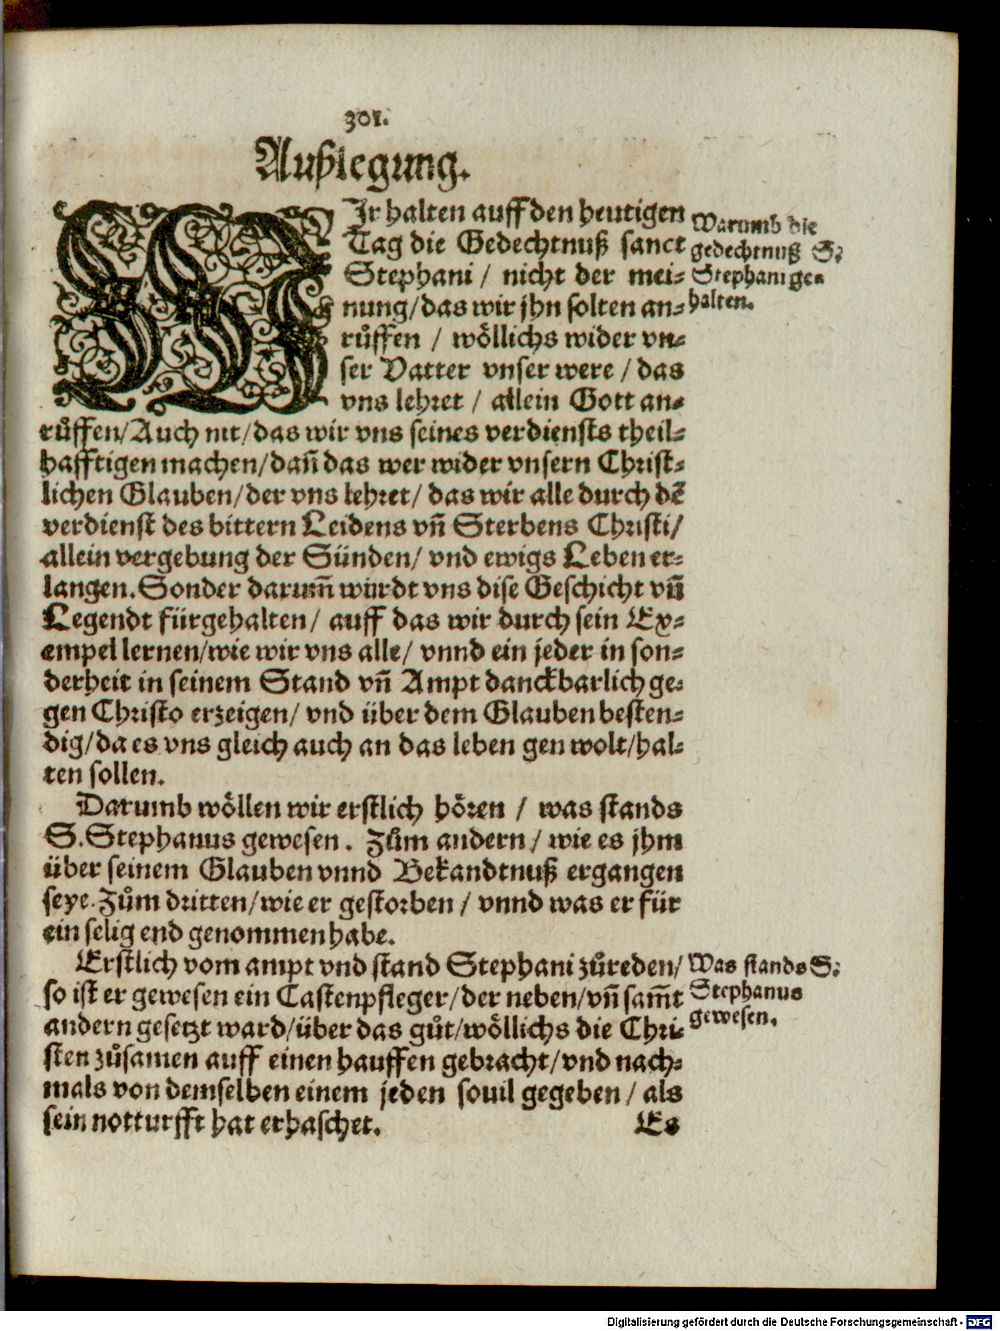 301.
Außlegung.
WIr halten auff den heutigen
Tag die Gedechtnuß sanct
Stephani / nicht der mei⸗
nung/das wir jhn solten an⸗
růffen / woͤllichs wider vn⸗
ser Vatter vnser were / das
vns lehret / allein Gott an⸗
růffen/Auch nit/das wir vns seines verdiensts theil⸗
hafftigen machen/dañ das wer wider vnsern Christ⸗
lichen Glauben/der vns lehret/das wir alle durch dē
verdienst des bittern Leidens vñ Sterbens Christi/
allein vergebung der Sünden/ vnd ewigs Leben er⸗
langen. Sonder darum̃ würdt vns dise Geschicht vñ
Legendt fürgehalten/ auff das wir durch sein Ex⸗
empel lernen/wie wir vns alle/ vnnd ein jeder in son⸗
derheit in seinem Stand vñ Ampt danckbarlich ge⸗
gen Christo erzeigen/ vnd über dem Glauben besten⸗
dig/da es vns gleich auch an das leben gen wolt/hal⸗
ten sollen.
Darumb woͤllen wir erstlich hoͤren / was stands
S. Stephanus gewesen. Zům andern/ wie es jhm
über seinem Glauben vnnd Bekandtnuß ergangen
seye. Zům dritten/wie er gestorben / vnnd was er für
ein selig end genommen habe.
Erstlich vom ampt vnd stand Stephani zůreden/
so ist er gewesen ein Castenpfleger/der neben/vñ sam̃t
andern gesetzt ward/über das gůt/woͤllichs die Chri⸗
sten zůsamen auff einen hauffen gebracht/vnd nach⸗
mals von demselben einem jeden souil gegeben/ als
sein notturfft hat erhaschet.
Es
Warumb die
gedechtnuß S:
Stephani ge⸗
halten.
Was stands S:
Stephanus
gewesen.
Digitalisierung gefördert durch die Deutsche Forschungsgemeinschaft - DFG